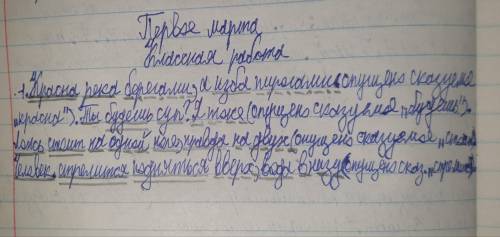 Первое марта
Классная работа
1. Красна река берегами, а изба пирогами (опущено сказуемое
"красна"). Ты будешь суп? Я тоже (опущено сказуемое "будешь").
стоит на одной ноге, на двух (опущено сказуемое "стоит
Человек стремится подняться вверх, вода вниз (опущено сказ. "стремится